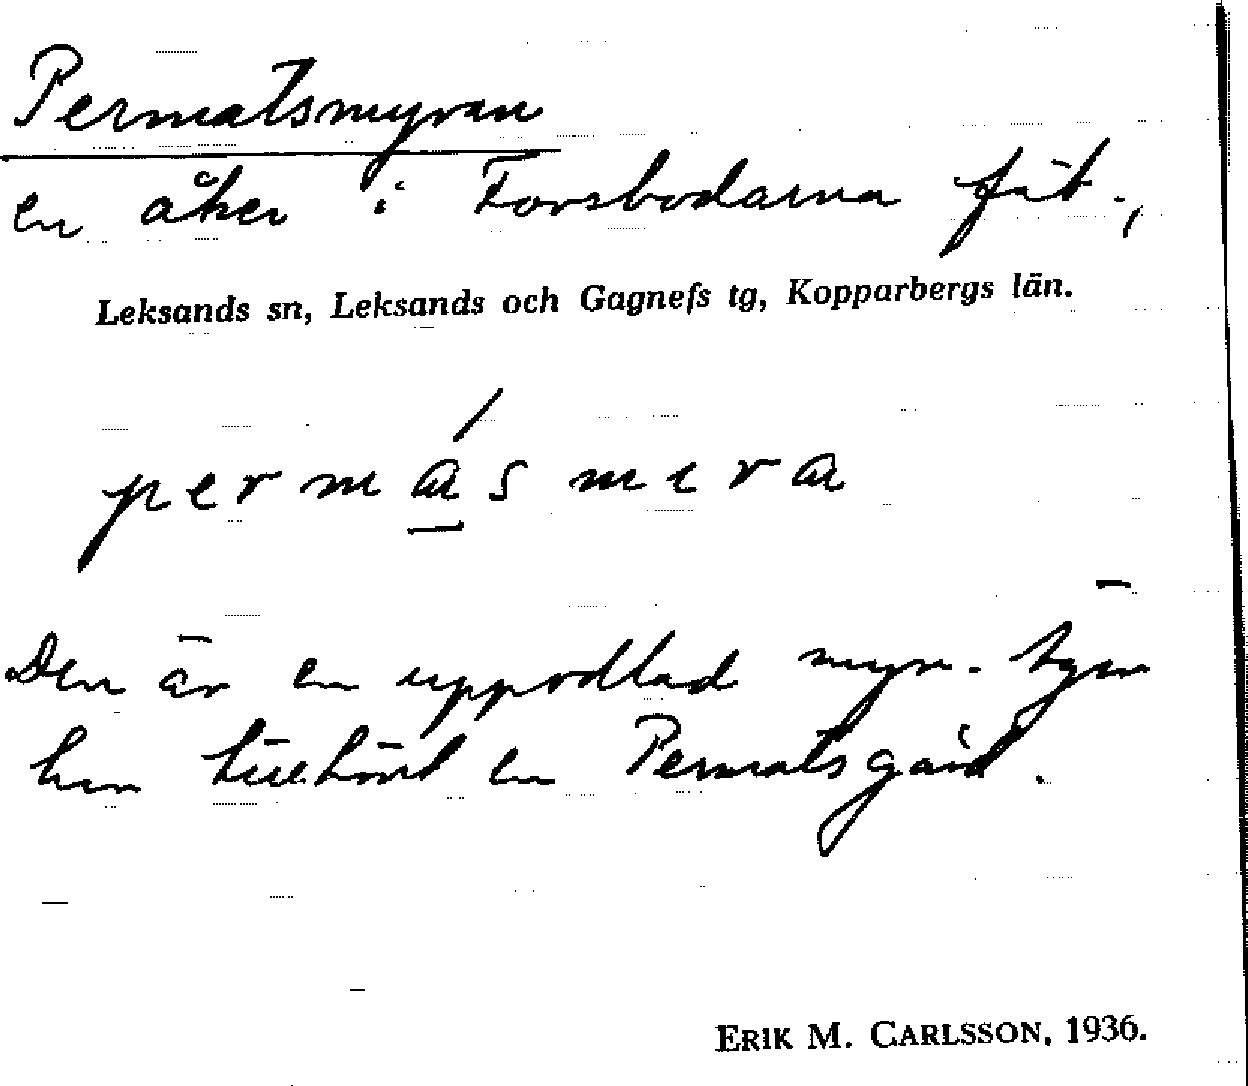 Permatsmyran
en åker i Forsbodarna fäb.,
Leksands sn, Leksands och Gagnefs tg, Kopparbergs län.
permásmɩra
Den är en uppodlad myr.
har tillhört en Permatsgård.
ERIK M. CARLSSON, 1936.